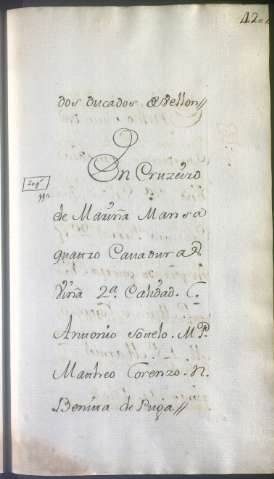 42
dos ducados de Vellon//
En Cruzeiro
de Mariña Mansa
quatro Cavadura R
Viña 2ª. Calidad. C.
Antonio Sotelo. M.P.
Matheo Lorenzo. N.
Benita de Puga//